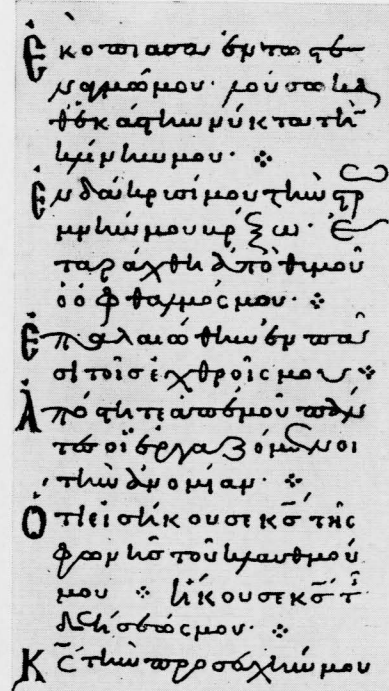 Ἐκοπίασα ἐν τῶ στε
ναγμῶ μου· λούσω κα
θεκάστην νύκτα τὴν
κλίνην μου· ⁘
Ἐν δάκρισί μου τὴν στρω
μνήν μου βρέξω· ἐ
ταράχθη ἀπὸ θιμοῦ
ὁ ὀφθαλμός μου· ⁘
Ἐπαλαιώθην ἐν πᾶ
σι τοῖς ἐχθροῖς μου ⁘
Ἀπόστητε ἀπ' ἐμοῦ πάν
τες οἱ ἐργαζόμενοι
τὴν ἀνομίαν· ⁘
Ὅτι εἰσήκουσε κ̅ς̅ τῆς
φωνῆς τοῦ κλαυθμοῦ
μου ⁘ ἤκουσε κ̅ς̅ τῆς
δεήσεώς μου· ⁘
Κ̅ς̅ τὴν προσευχήν μου